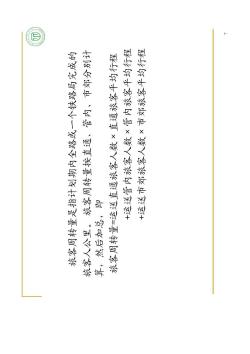 旅客周转量是指计划期内全路或一个铁路局完成的
旅客人公里。旅客周转量按直通、管内、市郊分别计
算，然后加总，即
旅客周转量=运送直通旅客人数×直通旅客平均行程
+运送管内旅客人数×管内旅客平均行程
+运送市郊旅客人数×市郊旅客平均行程